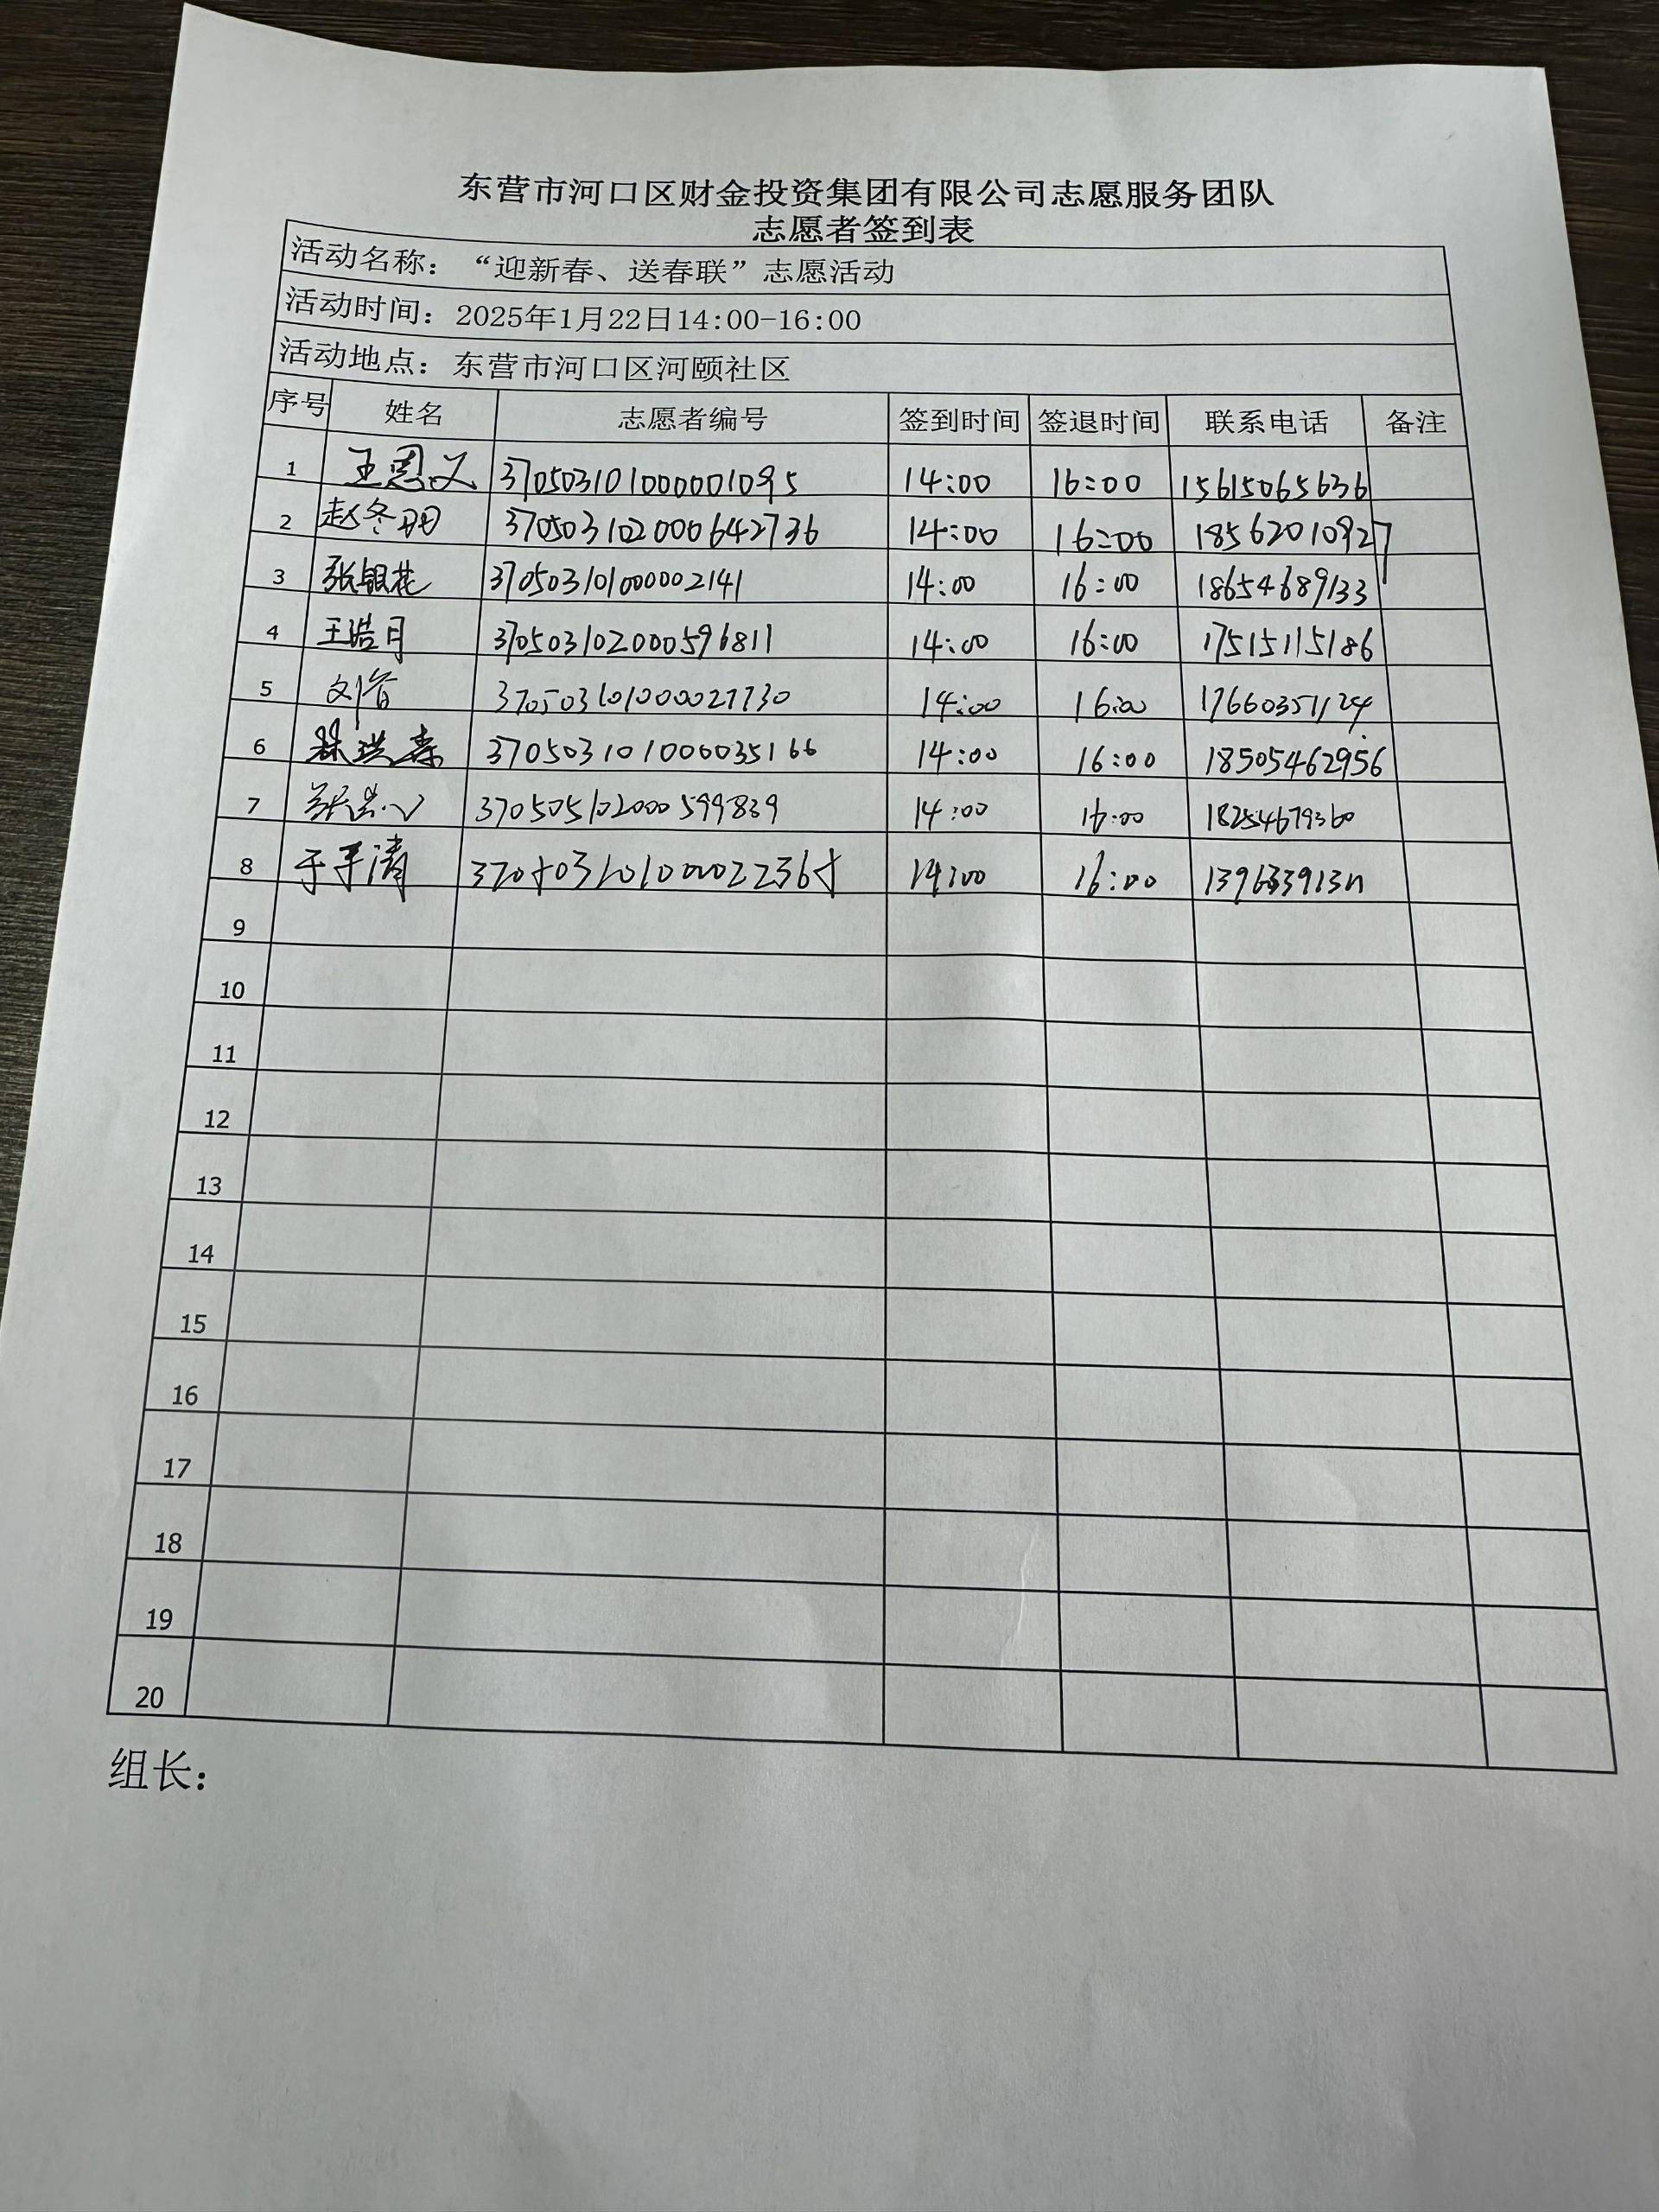 东营市河口区财金投资集团有限公司志愿服务团队
志愿者签到表
活动名称：“迎新春、送春联”志愿活动
活动时间：2025年1月22日14:00-16:00
活动地点：东营市河口区河颐社区
序号 姓名 志愿者编号 签到时间 签退时间 联系电话 备注
1 王恩义 3705031010000001095 14:00 16:00 15615065636
2 赵冬玥 370503102000642736 14:00 16:00 18562010927
3 张银花 370503101000002141 14:00 16:00 18654689133
4 王浩月 370503102000596811 14:00 16:00 17515115186
5 370503101000027730 14:00 16:00 17660351124
6 370503101000035166 14:00 16:00 18505462956
7 370505102000599839 14:00 16:00 18254679360
8 370503101000022365 14:00 16:00
9
10
11
12
13
14
15
16
17
18
19
20
组长：